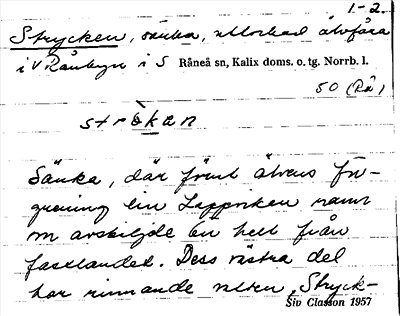 1.-2.
Strycken, sänka, uttorkad älvfåra
i V Rånbyn i S Råneå sn, Kalix doms. o. tg. Norrb. l.
50 (Rå)
strèkan
Sänka, där förut älvens för-
grening Lin Lappviken namn
en avskiljde en helt från
fastlandet. Dess västra del
har rinnande vatten, Stryck-
Siv Classon 1957